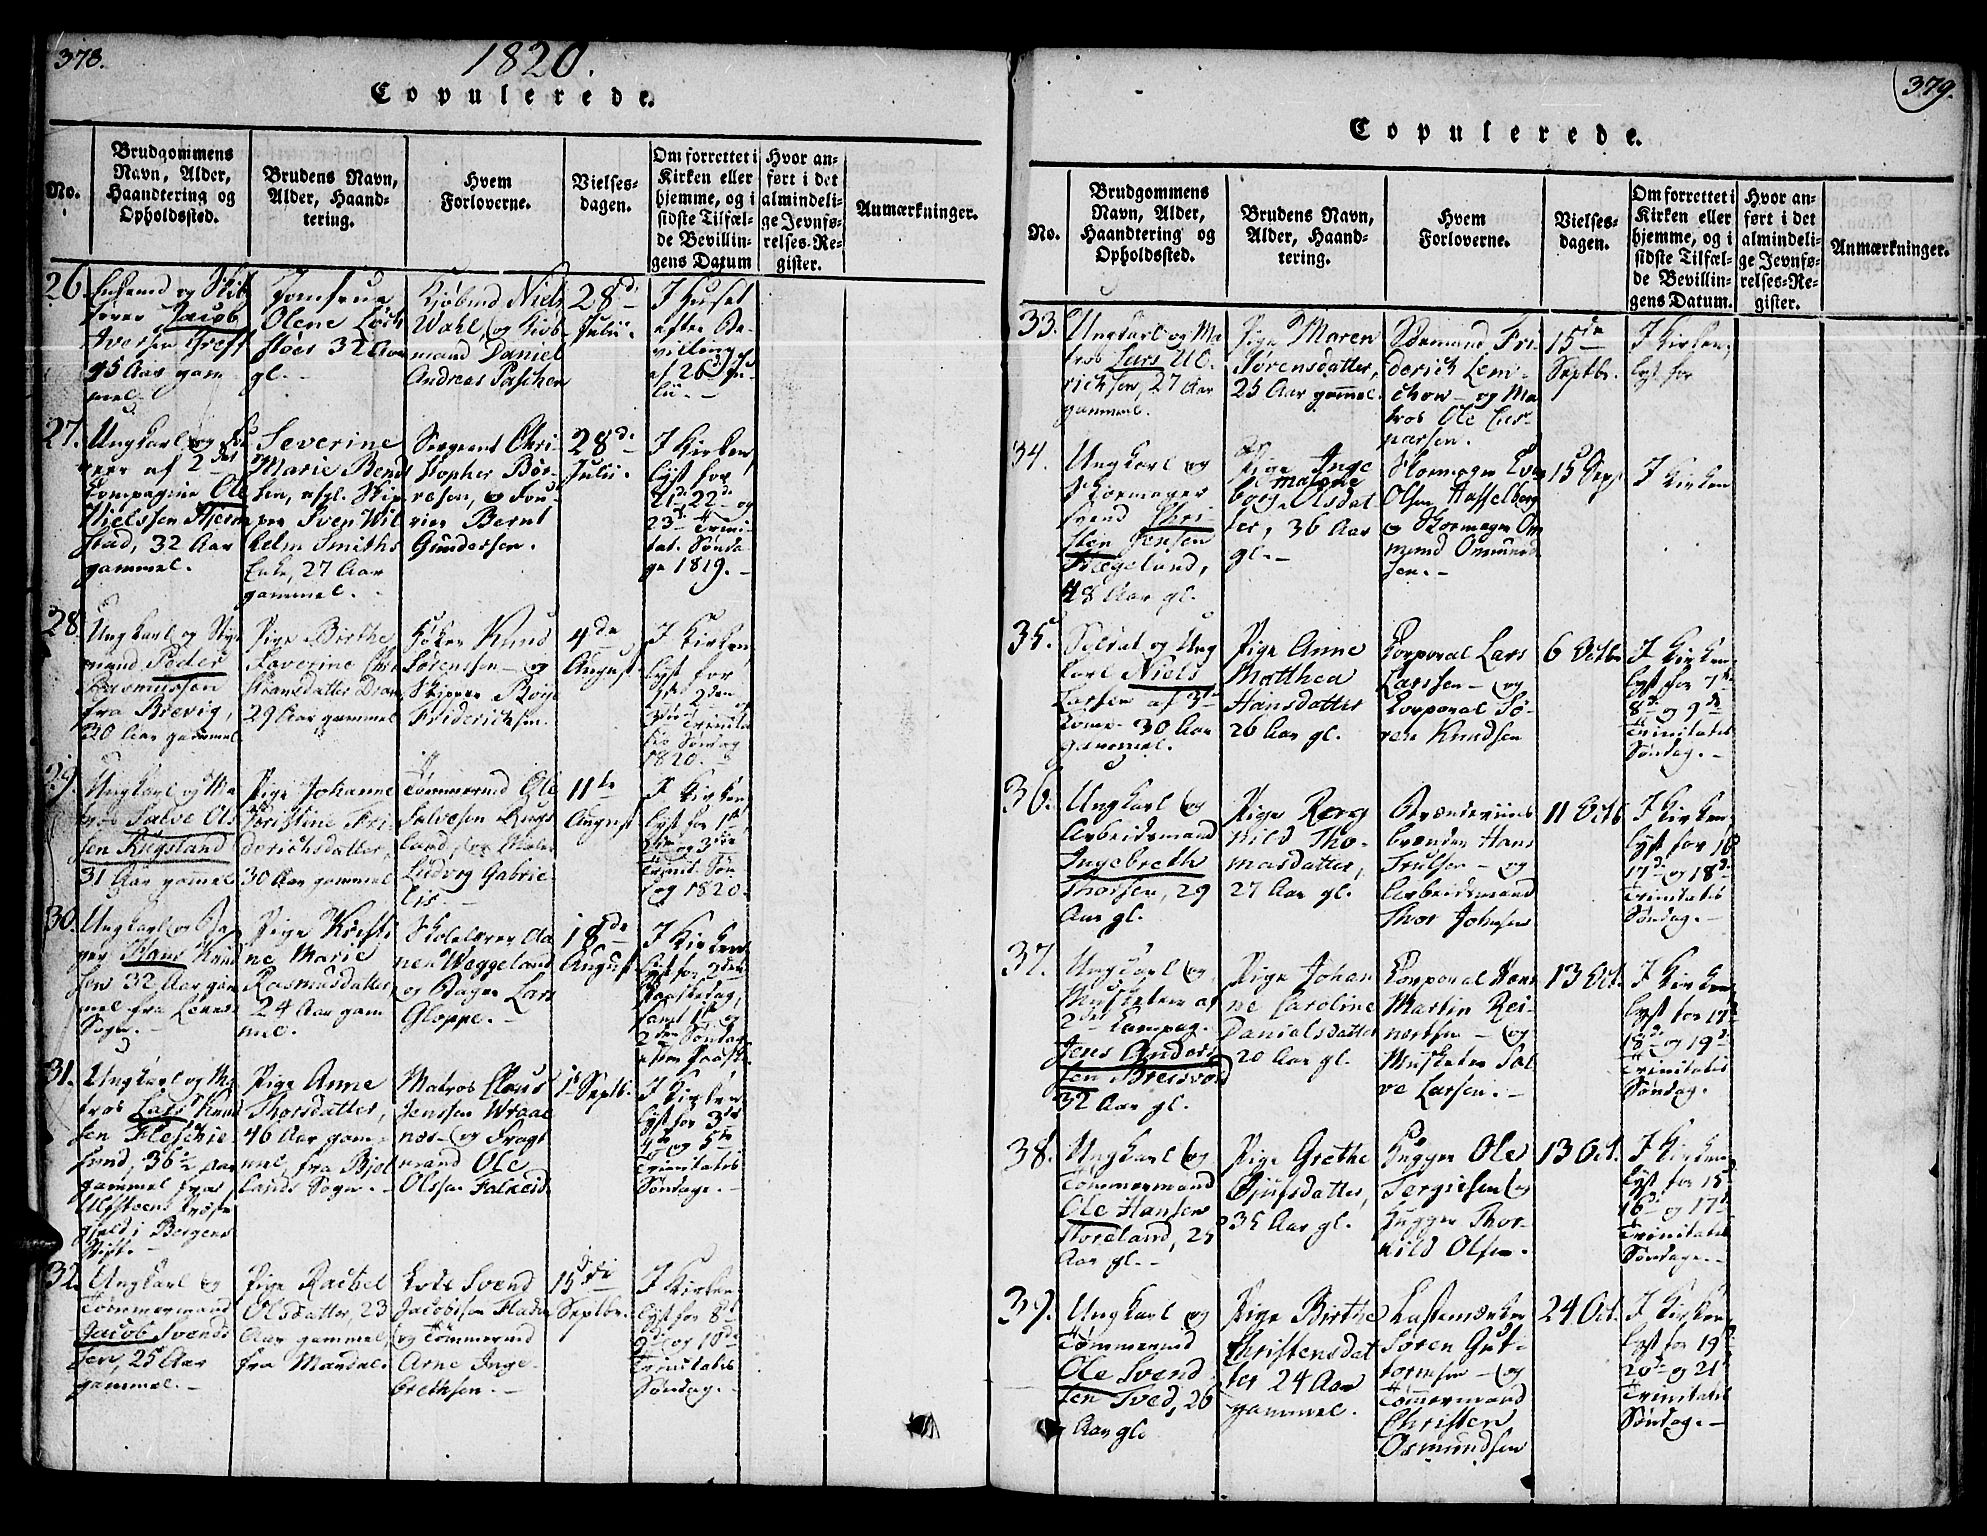 378.
1820.
Copulerede.
No.
Brudgommens
Navn, Alder,
Haandtering og
Opholdssted.
Brudens Navn,
Alder, Haand-
tering.
Hvem
Forloverne.
Vielses-
dagen.
Om forrettet i
Kirken eller
hjemme, og i
sidste Tilfæl-
de Bevillin-
gens Datum
Hvor an-
ført i det
almindeli-
ge Jevnfø-
relses-Re-
gister.
Anmærkninger.
26.
Jacob
45 Aar gam
mel.
Jomfrue
Olene Löch
stöer 32 Aar
gl.
Kjöbmd Niels
Wahl og Kiöb-
mand Daniel
Andreas Paschen
28de
Julii
I Huset
efter Be-
villing
af 26 Ju-
lii.
27.
Ungkarl og
af 2det
Compagnie Ole
Nielssen
stad, 32 Aar
gammel.
Severine
Marie Bend
sen, afgl. Skip
per Sven Wil
helm Smiths
Enke, 27 Aar
gammel.
Sergeant Chri-
stopher Bör-
resen, og Fou-
rier Bernt
Gundersen.
28de
Julii
I Kirken,
lyst for
21de 22de og
23de Trini-
tat. Sönda
ge 1819.
28
Ungkarl og Styr
mand Peder
Rasmussen
fra Brevig,
30 Aar gammel
Pige Birthe
29 Aar gammel
Höker Knud
Sörenssen og
Skipper Börge
Friderichsen.
4de
August
I Kirken,
lyst for
1st 2den og
3die Trinita
tis Söndag
1820.
29.
Ungkarl og Ma
tros Salve Ols
sen Rugsland
31 Aar gammel
Pige Johanne
Christine Fri-
derichsdatter,
30 Aar gammel
Tömmermd Ole
Salvesen Rugs
land, og
Ludvig Gabrie-
lis
11te
August
I Kirken,
lyst for 1st,
2den og 3die
Trinit. Sön
dag 1820.
30.
Ungkarl og
Hans Knud
sen 32 Aar gam
mel fra
Sogn.
Pige Kirsti
ne Marie
Rasmusdatter,
24 Aar gam
mel.
Skolelærer Aa
nen Weggeland
og Bager Lars
Gloppe.
18de
August
I Kirken
lyst for 2den
Paaskedag,
samt 1st og
2den Söndag
efter Paaske
31.
Ungkarl og Ma
tros Lars Knud
sen Fleschie
sund, 36½ Aar
gammel fra
Præste
gjeld i Bergens
Stift.
Pige Anne
Thorsdatter,
46 Aar gam-
mel, fra Bjel
lands Sogn.
Matros Claus
Jenssen Wraae
næs og Fragt
mand Ole
Olssen Falkeid
1st Septb.
I Kirken
lyst for 3die
4de og 5te
Trinitatis
Söndage.
32.
Ungkarl og
Tömmermand
Jacob Svends
sen, 25 Aar
gammel.
Pige Rachel
Olsdatter, 23
Aar gammel,
fra Mandal.
Lods Svend
Jacobsen
og Tömmermd
Arne Inge-
brethsen.
15de
Septbr.
I Kirken,
lyst for 8de
9de og 10de
Trinitatis
Söndag.
379.
Copulerede.
No.
Brudgommens
Navn, Alder,
Haandtering og
Opholdssted.
Brudens Navn,
Alder, Haand-
tering.
Hvem
Forloverne.
Vielses-
dagen.
Om forrettet i
Kirken eller
hjemme, og i
sidste Tilfæl-
de Bevillin-
gens Datum.
Hvor an-
ført i det
almindeli-
ge Jevnfø-
relses-Re-
gister.
Anmærkninger.
33.
Ungkarl og Ma
tros Lars Ul-
richsen, 27 Aar
gammel.
Pige Maren
Sörensdatter,
25 Aar gammel.
Fri-
derich Lem-
chow og Ma
tros Ole Cas-
parsen.
15de
Septbr.
I Kirken,
lyst for
34.
Ungkarl og
Skomager
svend Chri-
sten Jensen
48 Aar gl.
Pige Inge
Malene
borg Olsdat
ter, 36 Aar
gl.
Skomager Even
Olsen Hasselberg
og Skomager Os
mund Osmund
sen.
15 Sept
I Kirken
35.
Soldat og Ung
karl Niels
Larsen af 3die
Comp. 30 Aar
gammel.
Pige Anne
Matthea
Hansdatter
26 Aar gl.
Korporal Lars
Larssen og
Korporal Sö-
ren Knudsen
6 Octbr
I Kirken
lyst for 7de
8de og 9de
Trinitatis
Söndag.
36.
Ungkarl og
Arbeidsmand
Ingebreth
Thorsen, 29
Aar gl.
Pige Rag
nild Tho-
masdatter,
27 Aar gl.
Brændeviins
brænder Hans
Trulsen og
Arbeidsmand
Thor Johnsen
11 Octb
I Kirken
lyst for 16
17de og 18de
Trinitatis
Söndag.
37.
Ungkarl og
Musketeer af
2det Compag.
Jens Anders
sen Bresvod
32 Aar gl.
Pige Johan
ne Caroline
Danielsdatter
20 Aar gl.
Korporal
Martin Rei-
nertsen og
Musketer Sal
ve Larsen.
13 Oct.
I Kirken
lyst for 17de
18de og 19de
Trinitatis
Söndag.
38.
Ungkarl og
Tömmermand
Ole Hansen
25
Aar gl.
Pige Grethe
35 Aar gl.
Hugger Ole
Tergiesen og
Hugger Thor-
kild Olsen.
13 Oct.
I Kirken
lyst for 15de
16de og 17de
Trinitatis
Söndage.
39.
Ungkarl og
Tömmermd
Ole Svend
sen Tved, 26
Aar gl
Pige Birthe
Christensdat
ter 24 Aar
gammel.
Sören Gut-
tormsen og
Tömmermand
Christen
Osmundsen
24 Oct.
I Kirken,
lyst for 19de
20de og 21de
Trinitatis
Söndag.